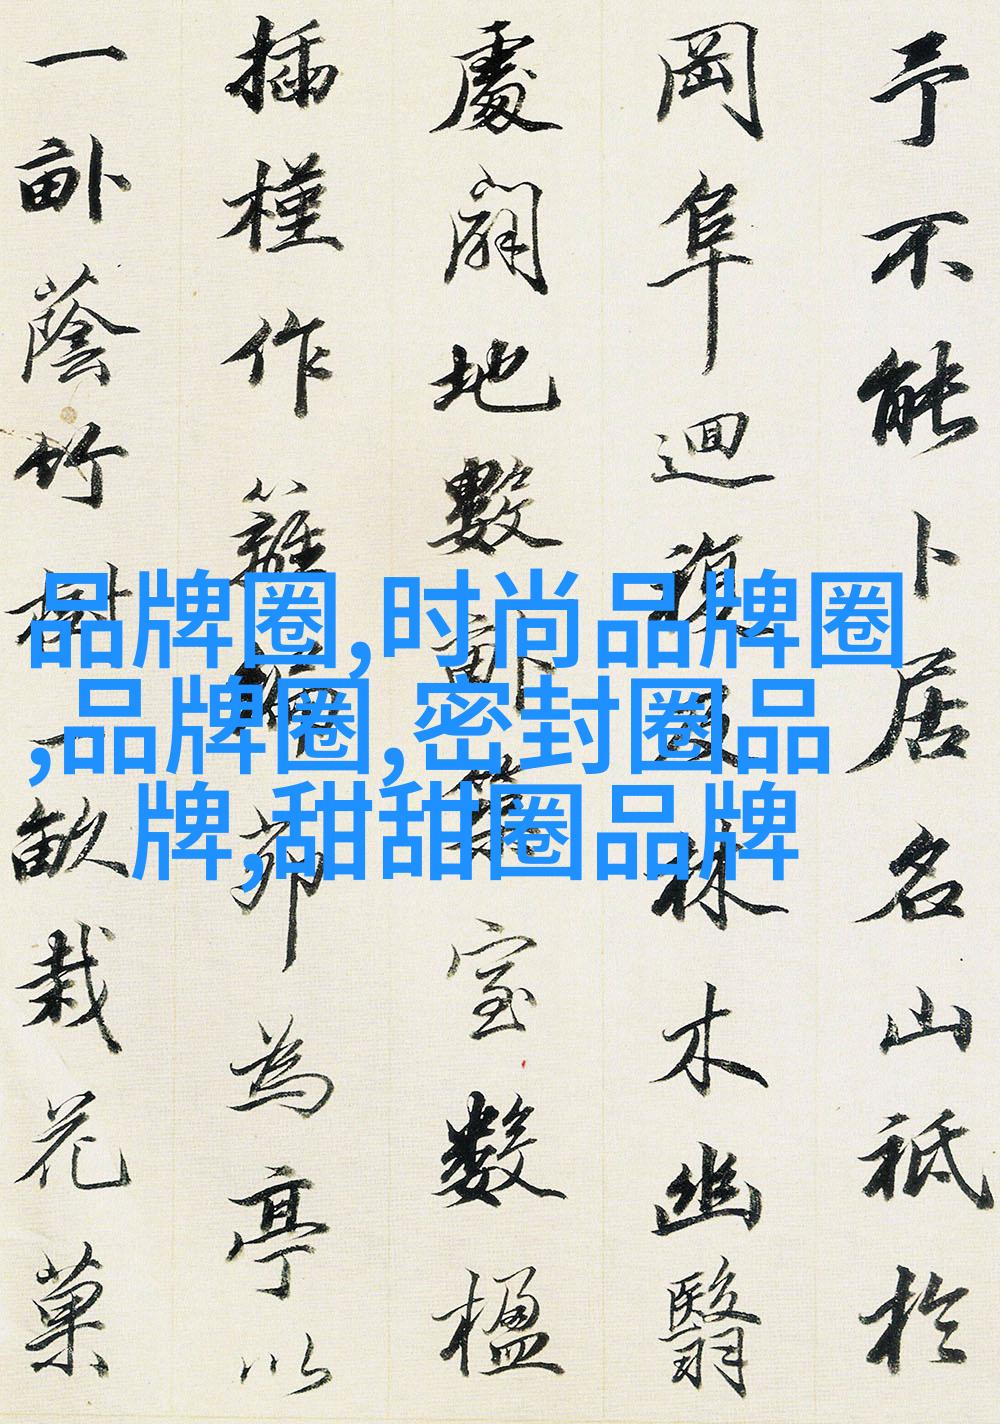 予不能卜居名山祗於
岡阜迴復及林木幽翳
處闢地數畝築室數楹
插槿作籬編茆為亭以
一畝蔭竹樹一畝栽花菓
品牌圈,时尚品牌圈
,品牌圈,密封圈品
牌,甜甜圈品牌